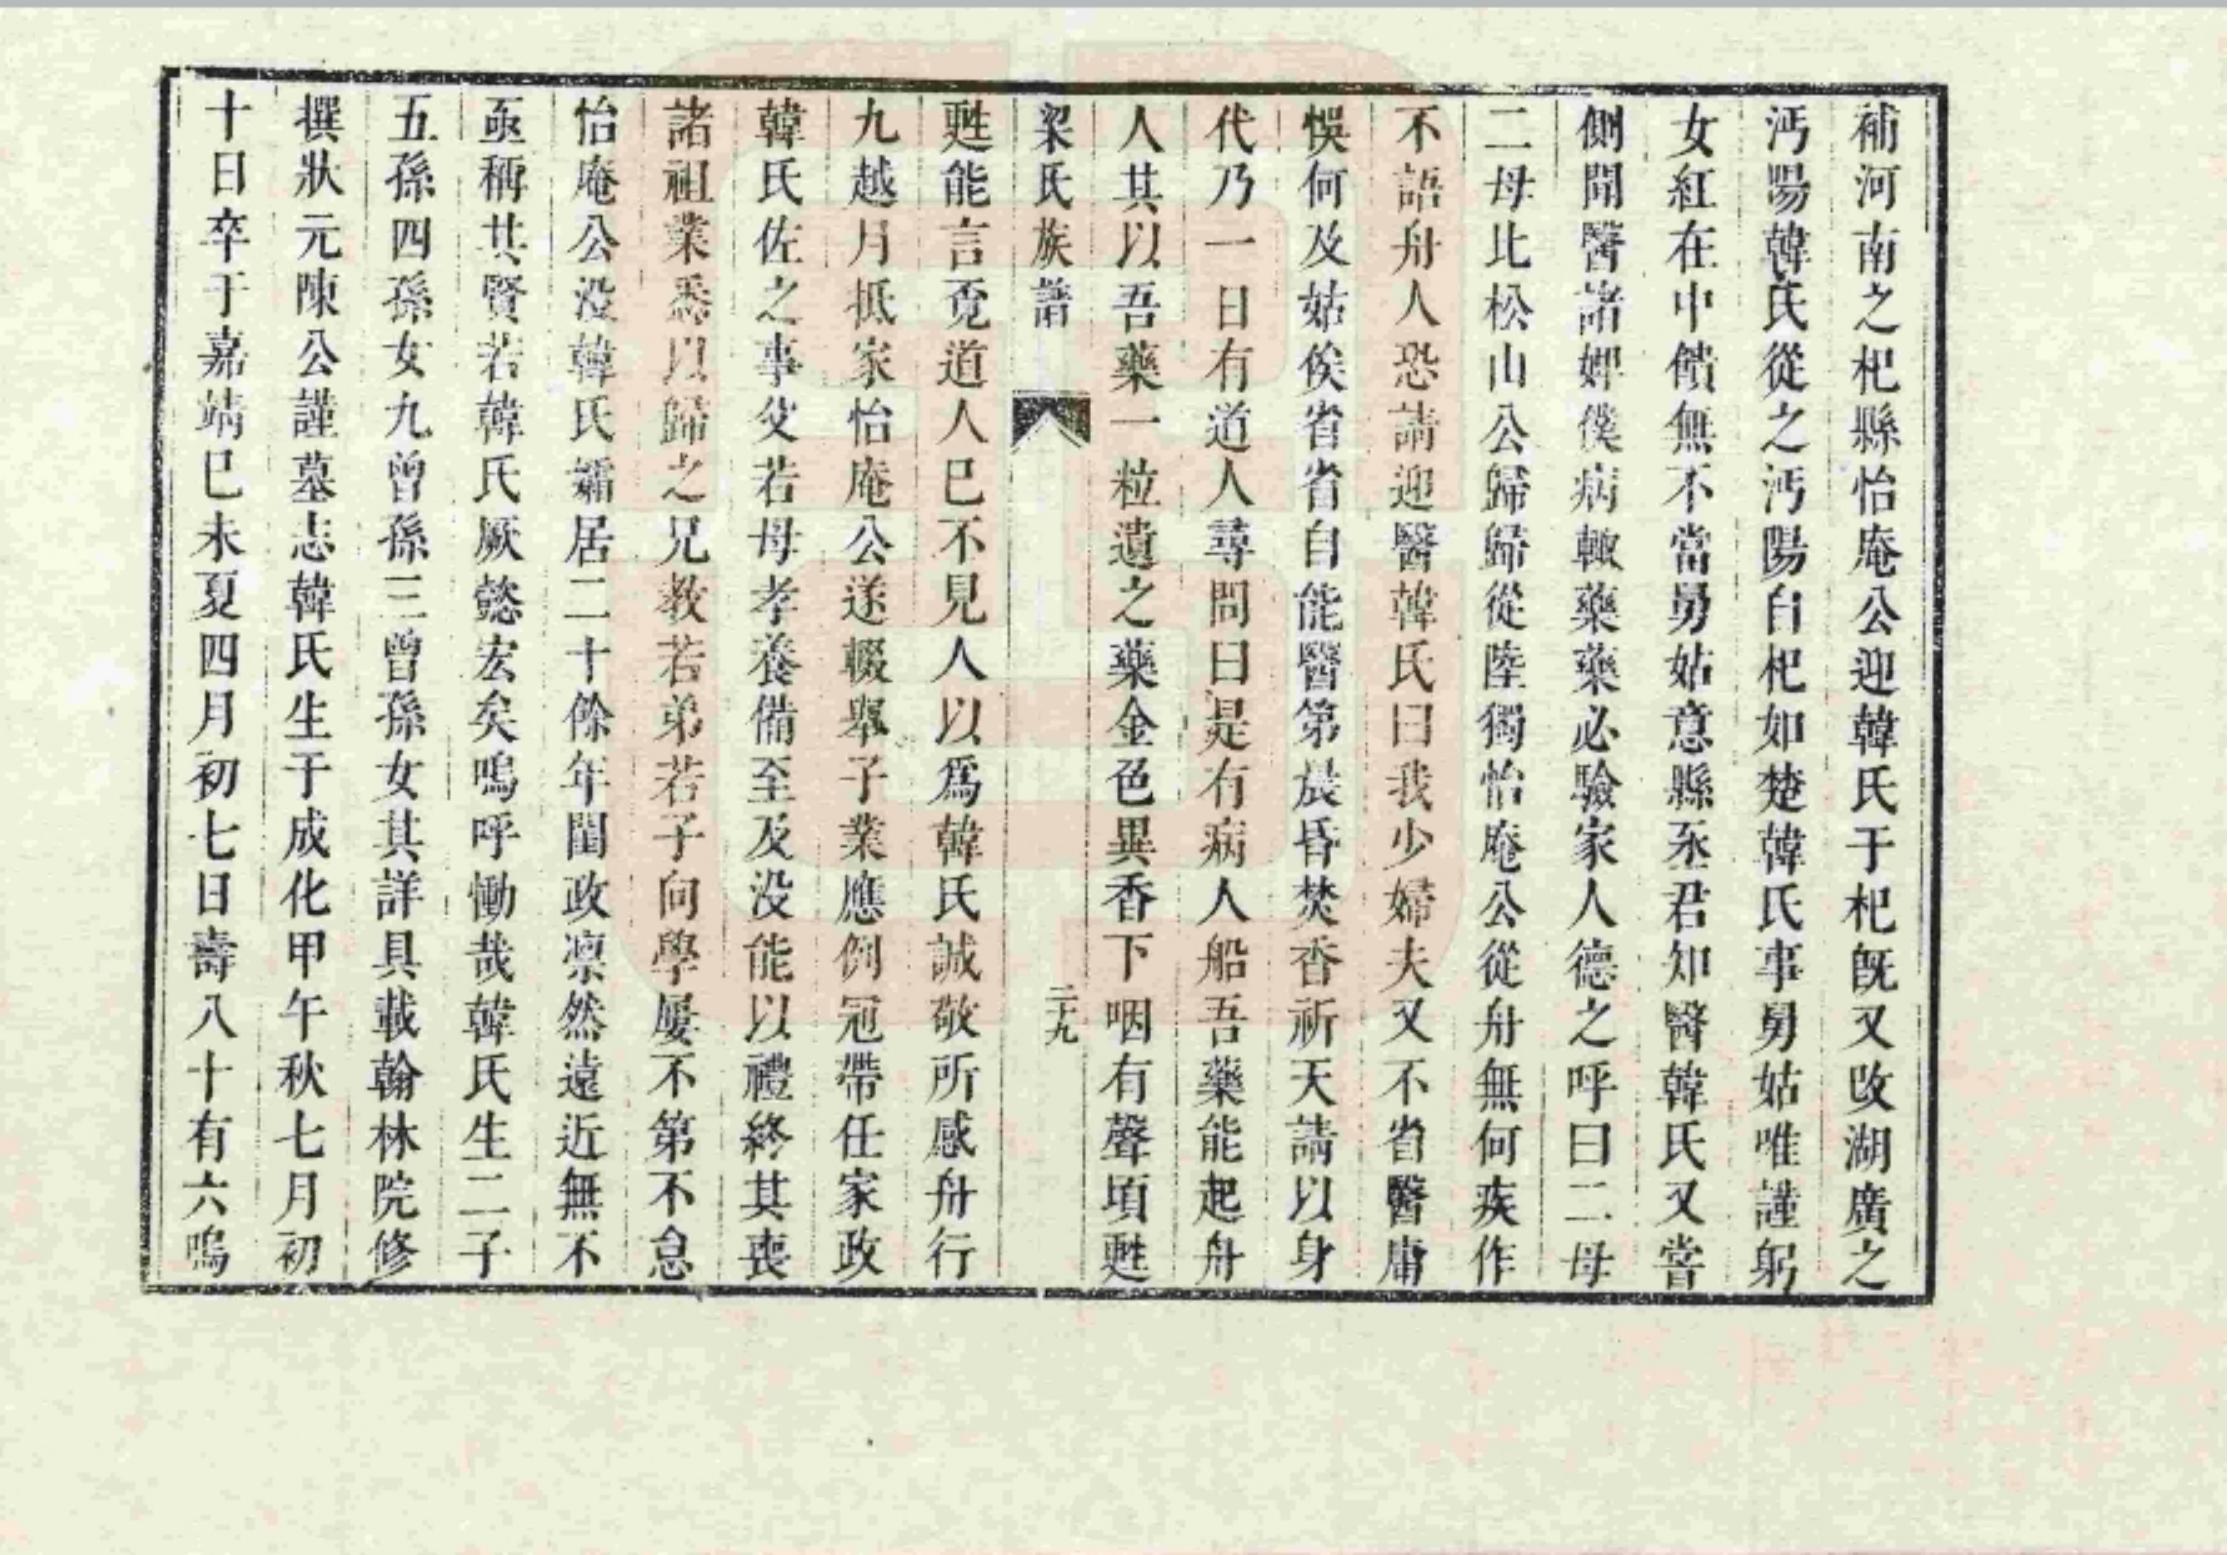 補河南之杞縣怡庵公迎韓氏于杞旣又改湖廣之
沔陽韓氏從之沔陽自杞如楚韓氏事舅姑唯謹躬
女紅在中饋無不當舅姑意縣丞君知醫韓氏又嘗
側聞醫諸婢僕病輙藥藥必驗家人德之呼曰二母
二母比松山公歸歸從陸獨怡庵公從舟無何疾作
不語舟人恐請迎醫韓氏曰我少婦夫又不省醫庸
悞何及姑俟省省自能醫第晨昏焚香祈天請以身
代乃一日有道人尋問曰是有病人船吾藥能起舟
人其以吾藥一粒遺之藥金色異香下咽有聲頃甦
梁氏族譜
二十九
甦能言覓道人已不見人以爲韓氏誠敬所感舟行
九越月抵家怡庵公遂輟舉子業應例冠帶任家政
韓氏佐之事父若母孝養備至及没能以禮終其喪
諸祖業悉以歸之兄教若弟若子向學屢不第不怠
怡庵公没韓氏孀居二十餘年閨政凛然遠近無不
亟稱其賢若韓氏厥懿宏矣嗚呼慟哉韓氏生二子
五孫四孫女九曾孫三曾孫女其詳具載翰林院修
撰狀元陳公謹墓志韓氏生于成化甲午秋七月初
十日卒于嘉靖已未夏四月初七日壽八十有六嗚